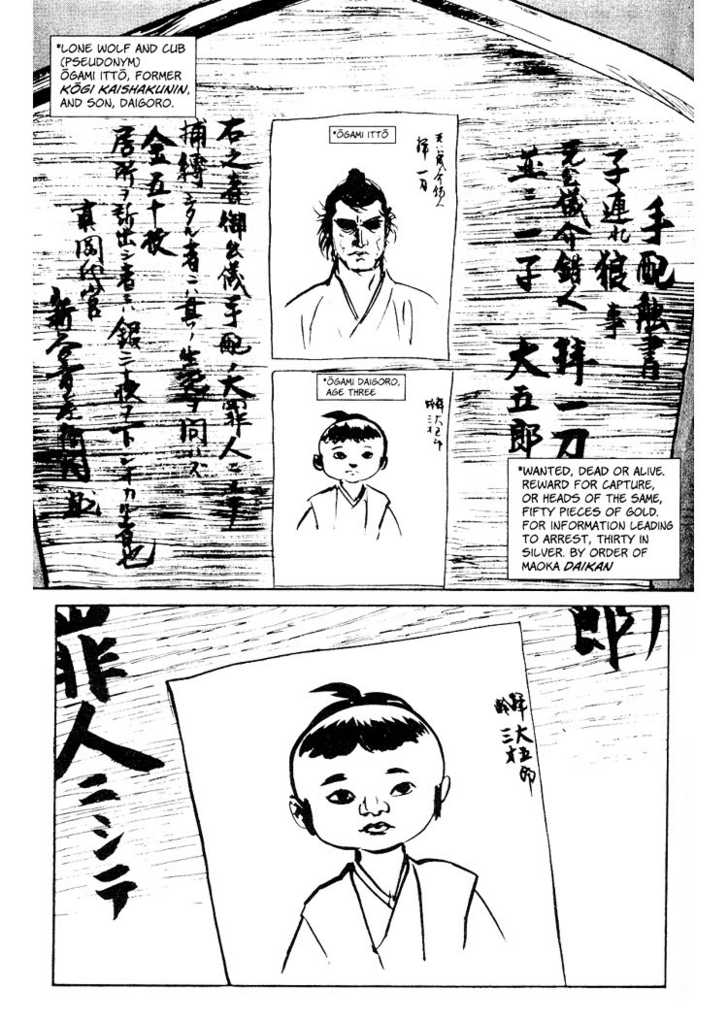 *LONE WOLF AND CUB
(PSEUDONYM)
ŌGAMI ITTŌ, FORMER
KŌGI KAISHAKUNIN,
AND SON, DAIGORO.
手配触書
子連れ狼事
元公儀介錯人 拝一刀
並ニ一子 大五郎
*ŌGAMI ITTŌ
元公儀介錯人
拝一刀
*ŌGAMI DAIGORO,
AGE THREE
拝大五郎
齢三才
右之者御公儀手配ノ大罪人ニシテ
捕縛シタル者ニハ其ノ生死ヲ問ハズ
金五十枚
居所ヲ訴出シ者ニハ銀三十枚ヲ下シオカル者也
真岡代官
*WANTED, DEAD OR ALIVE.
REWARD FOR CAPTURE,
OR HEADS OF THE SAME,
FIFTY PIECES OF GOLD.
FOR INFORMATION LEADING
TO ARREST, THIRTY IN
SILVER. BY ORDER OF
MAOKA DAIKAN
郎
拝大五郎
齢三才
罪人ニシテ